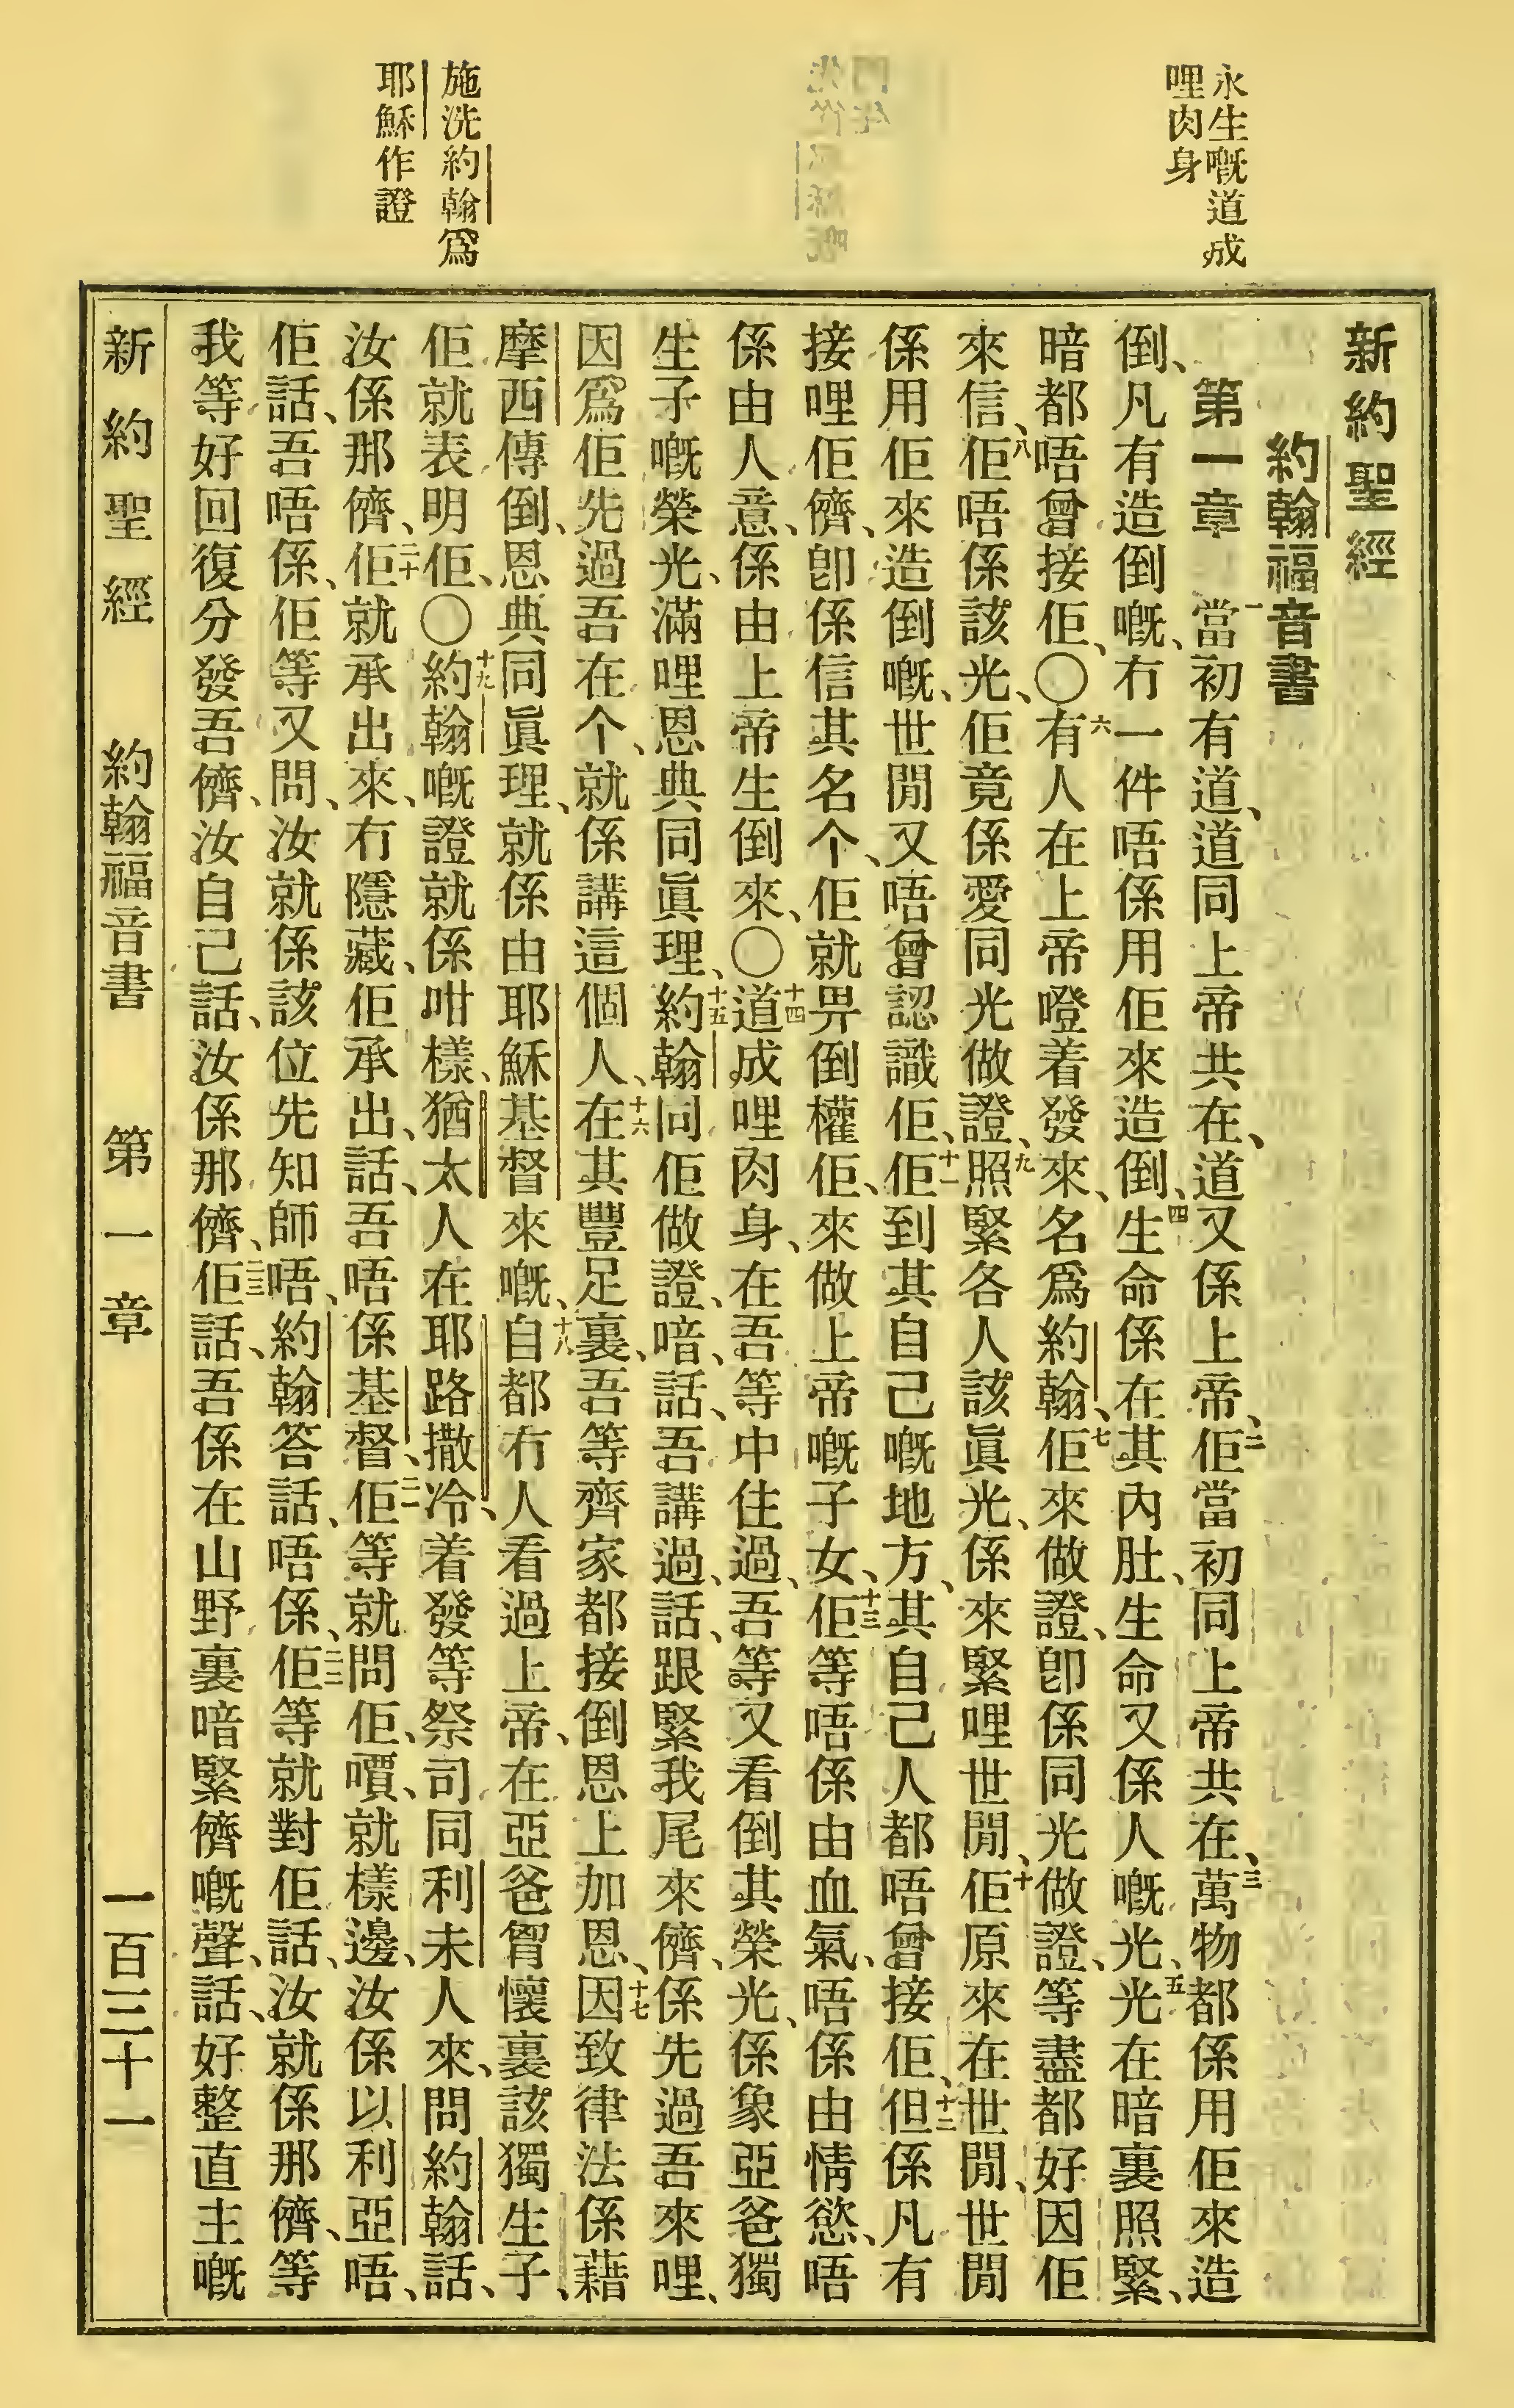 永生嘅道成
哩肉身
施洗約翰爲
耶穌作證
新約聖經
約翰福音書
第一章 一當初有道、道同上帝共在、道又係上帝、二佢當初同上帝共在、三萬物都係用佢來造
倒、凡有造倒嘅、冇一件唔係用佢來造倒、四生命係在其內肚、生命又係人嘅光、五光在暗裏照緊、
暗都唔曾接佢、〇六有人在上帝嶝着發來、名爲約翰、七佢來做證、卽係同光做證、等盡都好因佢
來信、八佢唔係該光、佢竟係愛同光做證、九照緊各人該眞光、係來緊哩世閒、十佢原來在世閒、世閒
係用佢來造倒嘅、世閒又唔曾認識佢、十一佢到其自己嘅地方、其自己人都唔曾接佢、十二但係凡有
接哩佢儕、卽係信其名个、佢就畀倒權佢、來做上帝嘅子女、十三佢等唔係由血氣、唔係由情慾、唔
係由人意、係由上帝生倒來、〇十四道成哩肉身、在吾等中住過、吾等又看倒其榮光、係象亞爸獨
生子嘅榮光、滿哩恩典同眞理、十五約翰同佢做證、喑、話、吾講過、話、跟緊我尾來儕、係先過吾來哩、
因爲佢先過吾在个、就係講這個人、十六在其豐足裏、吾等齊家都接倒恩上加恩、十七因致律法係藉
摩西傳倒、恩典同眞理、就係由耶穌基督來嘅、十八自都冇人看過上帝、在亞爸胷懷裏該獨生子、
佢就表明佢、〇十九約翰嘅證就係咁樣、猶太人在耶路撒冷、着發等祭司同利未人來、問約翰話、
汝係那儕、二十佢就承出來、冇隱藏、佢承出、話、吾唔係基督、二一佢等就問佢、嘳、就樣邊、汝係以利亞唔、
佢話、吾唔係、佢等又問、汝就係該位先知師唔、約翰答話、唔係、二二佢等就對佢話、汝就係那儕、等
我等好回復分發吾儕、汝自己話、汝係那儕、二三佢話、吾係在山野裏喑緊儕嘅聲、話、好整直主嘅
新約聖經 約翰福音書 第一章 一百三十一